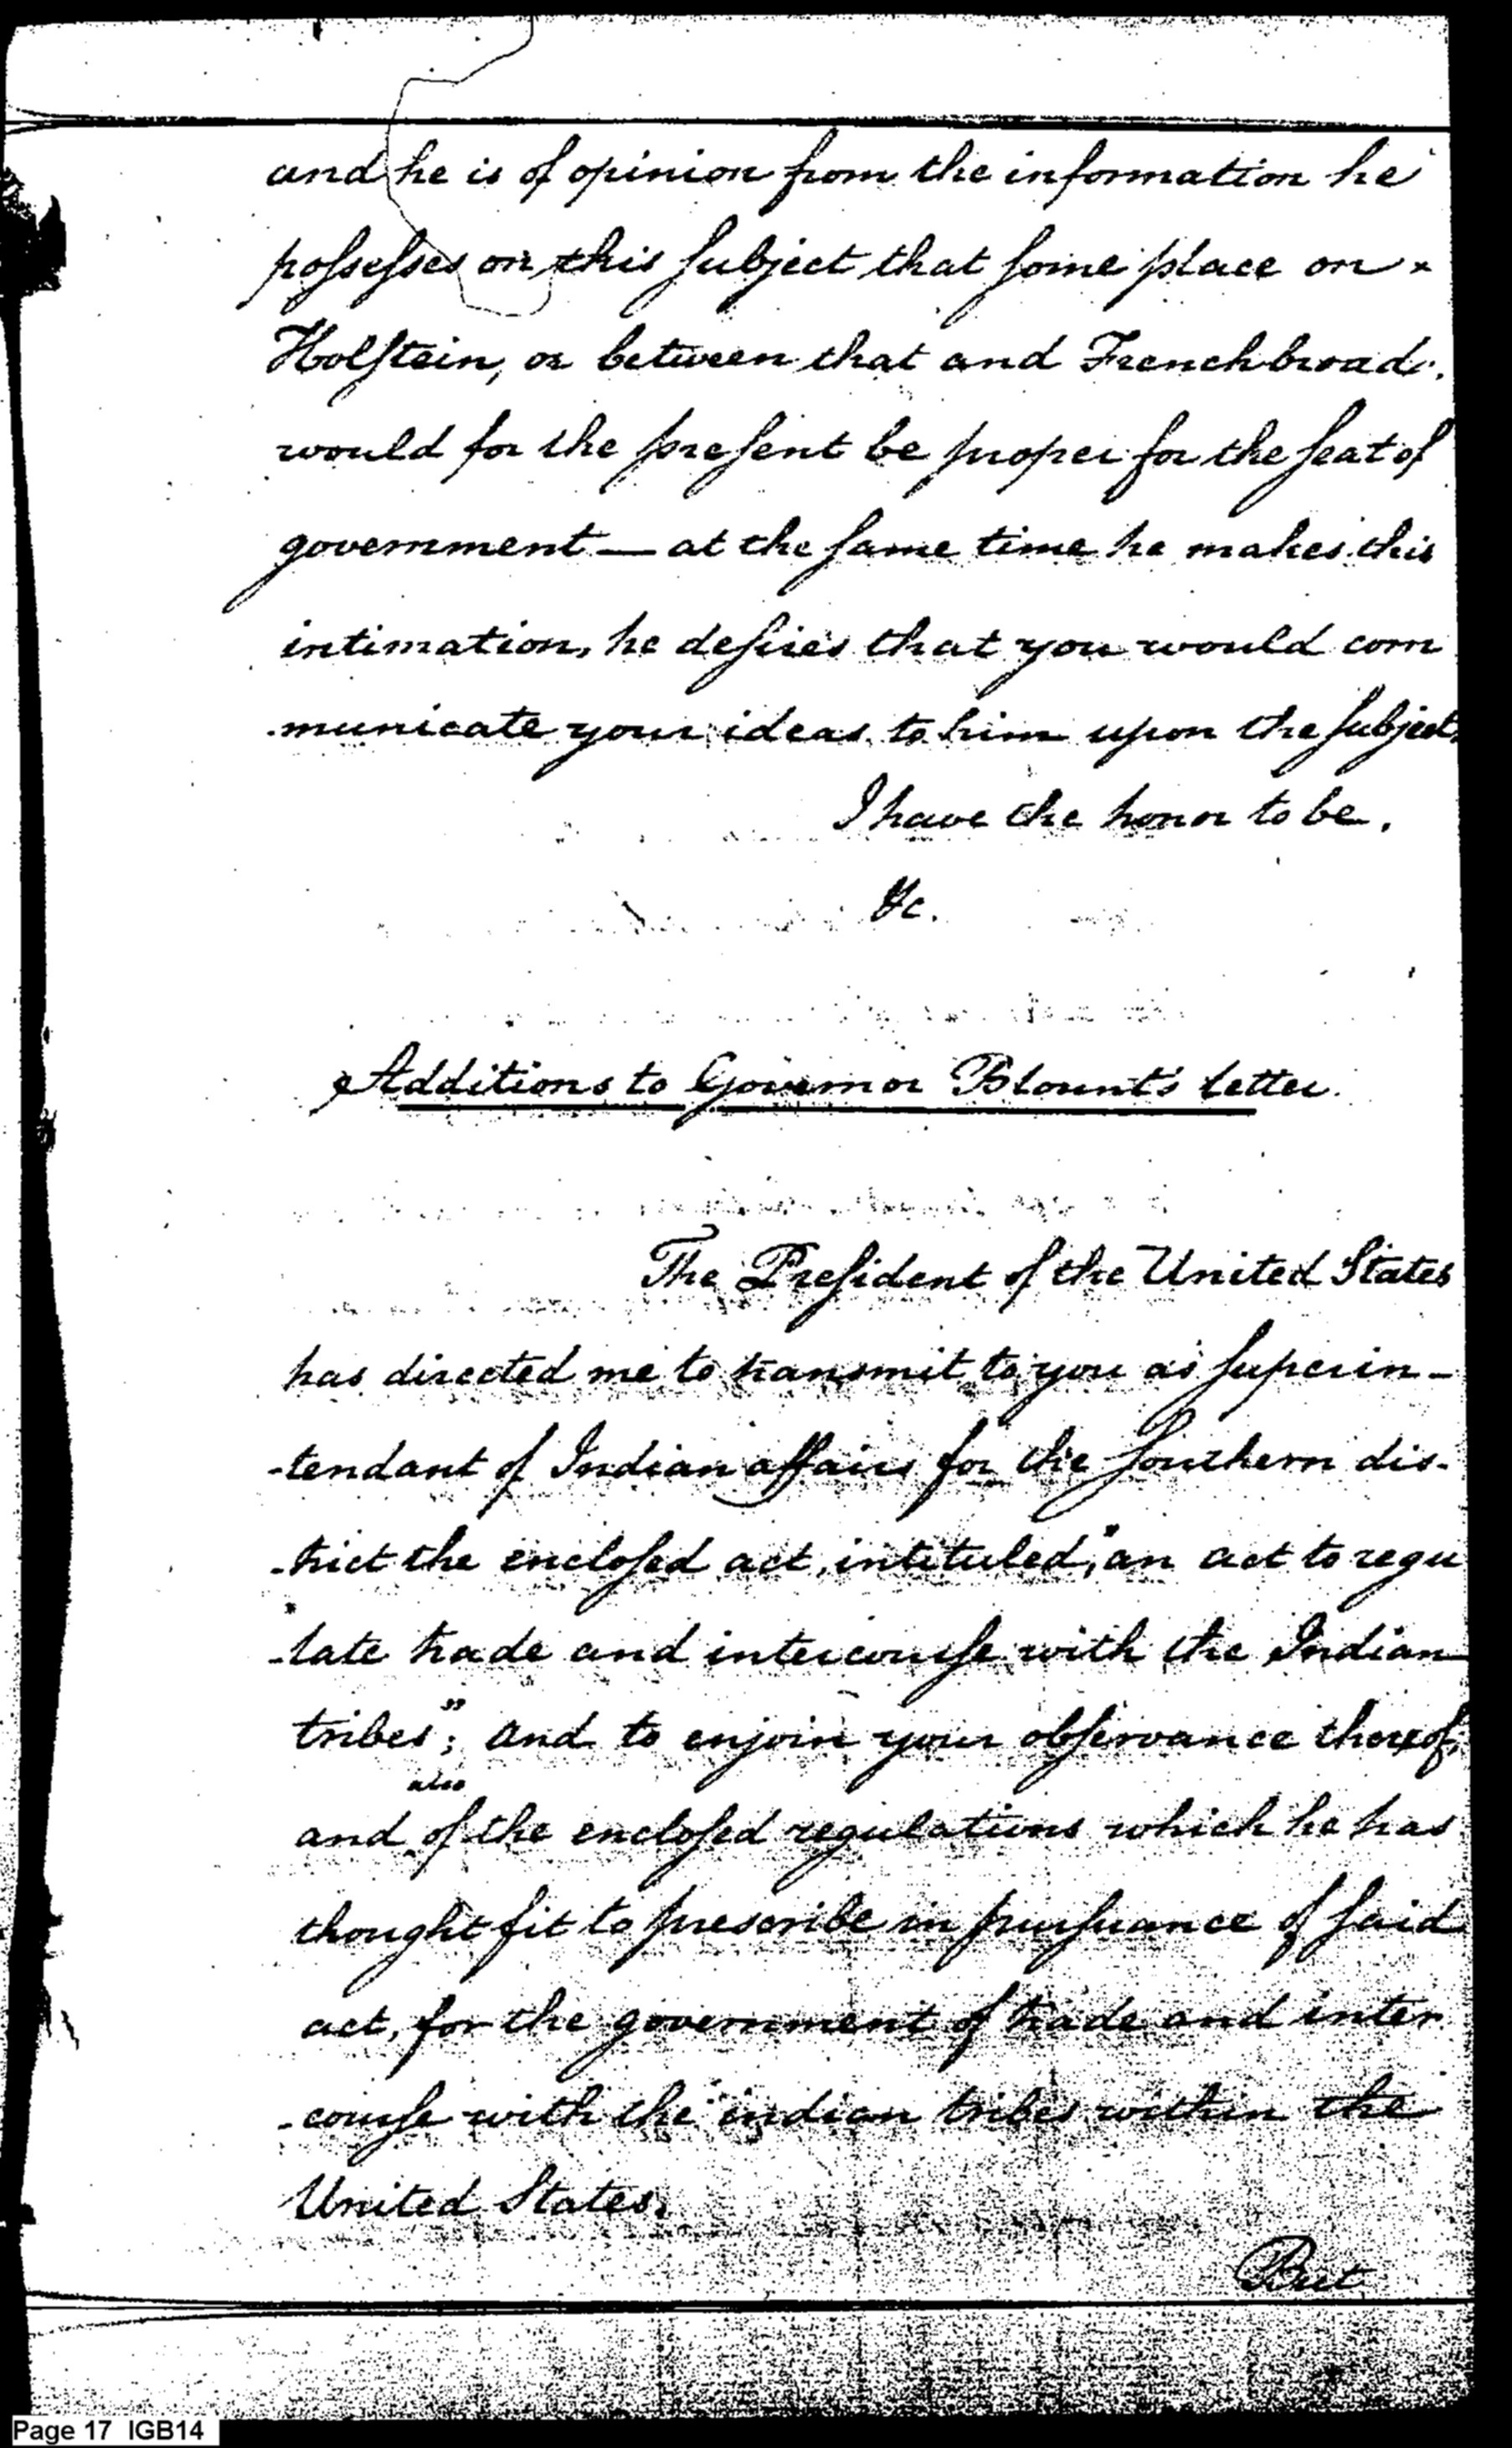 and he is of opinion from the information he
possesses on this subject that some place on
Holstein, or between that and Frenchbroad.
would for the present be proper for the seat of
government — at the same time he makes this
intimation, he desires that you would com
municate your ideas to him upon the subject,
I have the honor to be,
&c.
Additions to Governor Blount's letter.
The President of the United States
has directed me to transmit to you as superin-
-tendant of Indian affairs for the Southern dis-
-trict the enclosed act, intituled, "an act to regu
-late trade and intercourse with the Indian
tribes"; and to enjoin your observance thereof,
also
and of the enclosed regulations which he has
thought fit to prescribe in pursuance of said
act, for the government of trade and inter
-course with the indian tribes within the
United States.
But
Page 17 IGB14